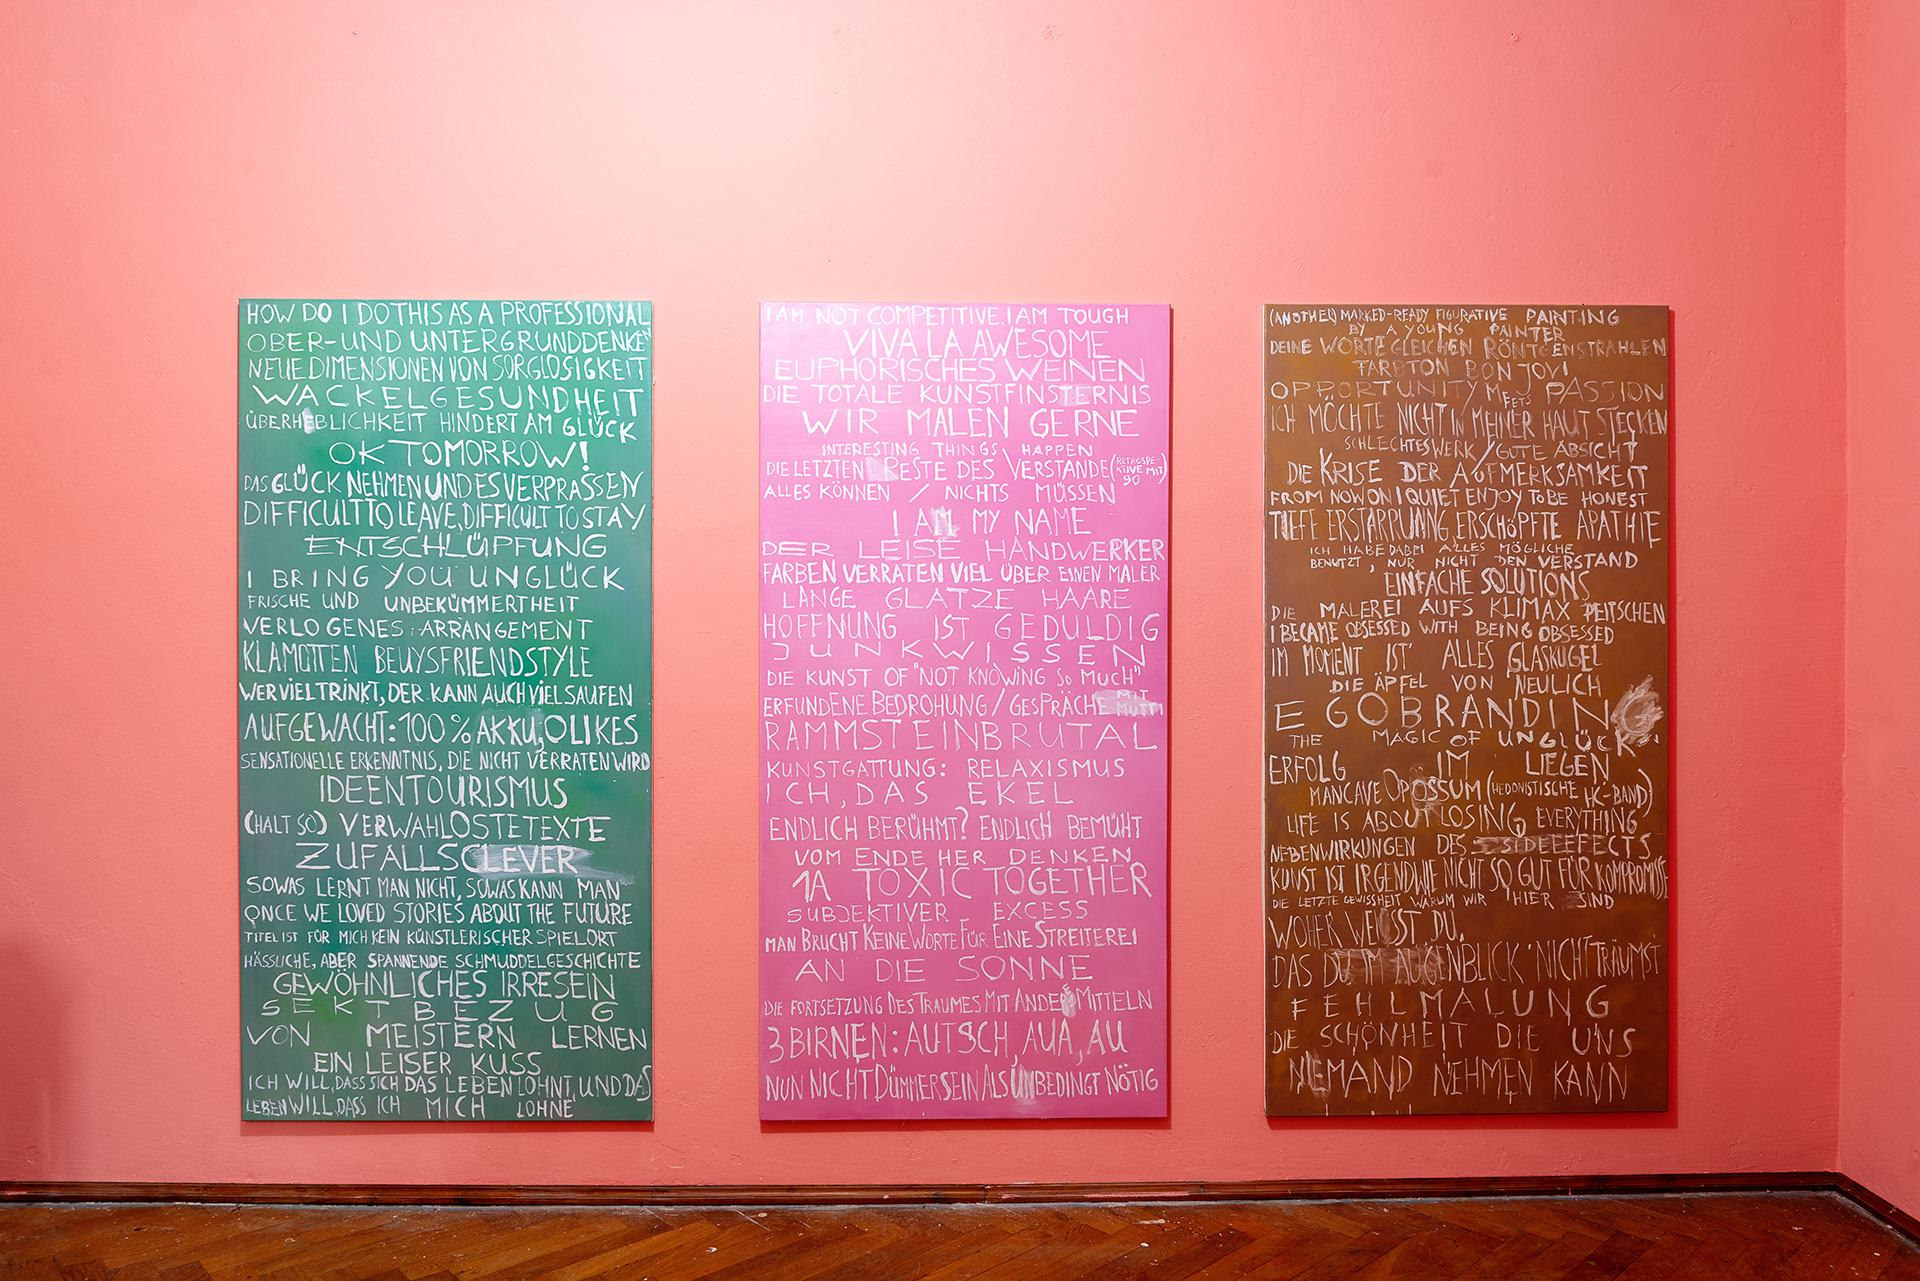 HOW DO I DO THIS AS A PROFESSIONAL
OBER-UND UNTERGRUNDDENKEN
NEUE DIMENSIONEN VON SORGLOSIGKEIT
WACKELGESUNDHEIT
ÜBERHEBLICHKEIT HINDERT AM GLÜCK
OK TOMORROW!
DAS GLÜCK NEHMEN UND ES VERPRASSEN
DIFFICULT TO LEAVE, DIFFICULT TO STAY
ENTSCHLÜPFUNG
I BRING YOU UNGLÜCK
FRISCHE UND UNBEKÜMMERTHEIT
VERLOGENES ARRANGEMENT
KLAMOTTEN BEUYSFRIENDSTYLE
WER VIEL TRINKT, DER KANN AUCH VIEL SAUFEN
AUFGEWACHT: 100% AKKU, 0 LIKES
SENSATIONELLE ERKENNTNIS, DIE NICHT VERRATEN WIRD
IDEENTOURISMUS
(HALT SO) VERWAHLOSTE TEXTE
ZUFALLSCLEVER
SOWAS LERNT MAN NICHT, SOWAS KANN MAN
ONCE WE LOVED STORIES ABOUT THE FUTURE
TITEL IST FÜR MICH KEIN KÜNSTLERISCHER SPIELORT
HÄSSLICHE, ABER SPANNENDE SCHMUDDELGESCHICHTE
GEWÖHNLICHES IRRESEIN
SEKTBEZUG
VON MEISTERN LERNEN
EIN LEISER KUSS
ICH WILL, DASS SICH DAS LEBEN LOHNT, UND DAS
LEBEN WILL, DASS ICH MICH LOHNE
I AM NOT COMPETITIVE. I AM TOUGH
VIVA LA AWESOME
EUPHORISCHES WEINEN
DIE TOTALE KUNSTFINSTERNIS
WIR MALEN GERNE
INTERESTING THINGS HAPPEN
DIE LETZTEN RESTE DES VERSTANDE (RETROSPEKTIVE MIT 90)
ALLES KÖNNEN / NICHTS MÜSSEN
I AM MY NAME
DER LEISE HANDWERKER
FARBEN VERRATEN VIEL ÜBER EINEN MALER
LANGE GLATZE HAARE
HOFFNUNG IST GEDULDIG
JUNKWISSEN
DIE KUNST OF "NOT KNOWING SO MUCH"
ERFUNDENE BEDROHUNG / GESPRÄCHE MIT MUTTI
RAMMSTEINBRUTAL
KUNSTGATTUNG: RELAXISMUS
ICH, DAS EKEL
ENDLICH BERÜHMT? ENDLICH BEMÜHT
VOM ENDE HER DENKEN
1A TOXIC TOGETHER
SUBJEKTIVER EXCESS
MAN BRUCHT KEINE WORTE FÜR EINE STREITEREI
AN DIE SONNE
DIE FORTSETZUNG DES TRAUMES MIT ANDERE MITTELN
3 BIRNEN: AUTSCH, AUA, AU
NUN NICHT DÜMMER SEIN ALS UNBEDINGT NÖTIG
(ANOTHER) MARKED-READY FIGURATIVE PAINTING
BY A YOUNG PAINTER
DEINE WORTE GLEICHEN RÖNTGENSTRAHLEN
FARBTON BON JOVI
OPPORTUNITY MEETS PASSION
ICH MÖCHTE NICHT IN MEINER HAUT STECKEN
SCHLECHTES WERK / GUTE ABSICHT
DIE KRISE DER AUFMERKSAMKEIT
FROM NOW ON I QUIET ENJOY TO BE HONEST
TIEFE ERSTARRUNG, ERSCHÖPFTE APATHIE
ICH HABE DABEI ALLES MÖGLICHE
BENUTZT, NUR NICHT DEN VERSTAND
EINFACHE SOLUTIONS
DIE MALEREI AUFS KLIMAX PEITSCHEN
I BECAME OBSESSED WITH BEING OBSESSED
IM MOMENT IST ALLES GLASKUGEL
DIE ÄPFEL VON NEULICH
EGOBRANDING
THE MAGIC OF UNGLÜCK
ERFOLG IM LIEGEN
MANCAVE OPOSSUM (HEDONISTISCHE HC-BAND)
LIFE IS ABOUT LOSING EVERYTHING
NEBENWIRKUNGEN DES SIDEEFFECTS
KUNST IST IRGENDWIE NICHT SO GUT FÜR KOMPROMISSE
DIE LETZTE GEWISSHEIT WARUM WIR HIER SIND
WOHER WEISST DU,
DAS DU IM AUGENBLICK NICHT TRÄUMST
FEHLMALUNG
DIE SCHÖNHEIT DIE UNS
NIEMAND NEHMEN KANN